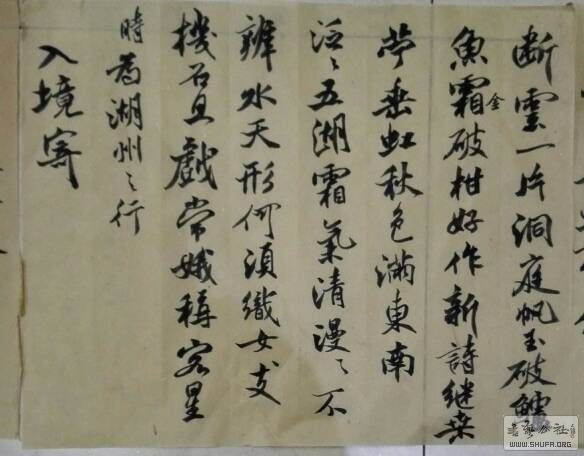 断雲一片洞庭帆玉破鱸
魚霜金破柑好作新詩继桑
苧垂虹秋色滿東南
泛〻五湖霜氣清漫〻不
辨水天形何須織女支
機石且戲常娥稱客星
時為湖州之行
入境寄
WWW.SHUFA.ORG